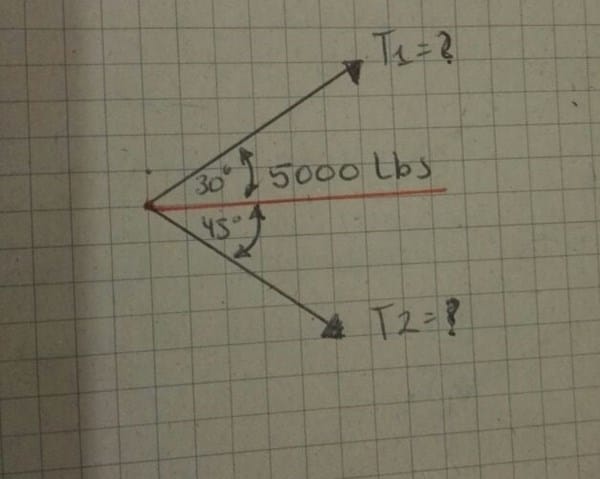 T1=?
30° 5000 Lbs
45°
T2=?